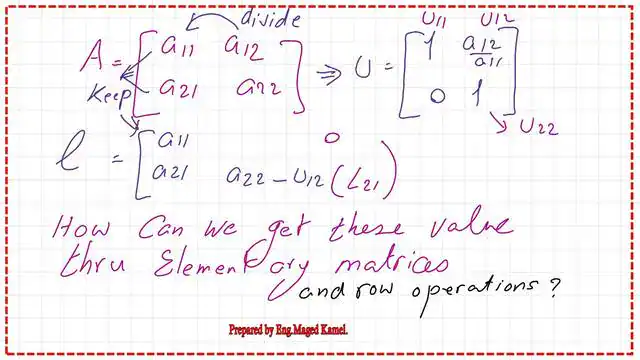 divide
U11 U12
A = [ a11 a12
a21 a22 ] ⇒ U = [ 1 a12/a11
0 1 ]
Keep
U22
l = [ a11 0
a21 a22 - U12 (L21) ]
How Can we get these value
thru Element ary matrices
and row operations?
Prepared by Eng.Maged Kamel.